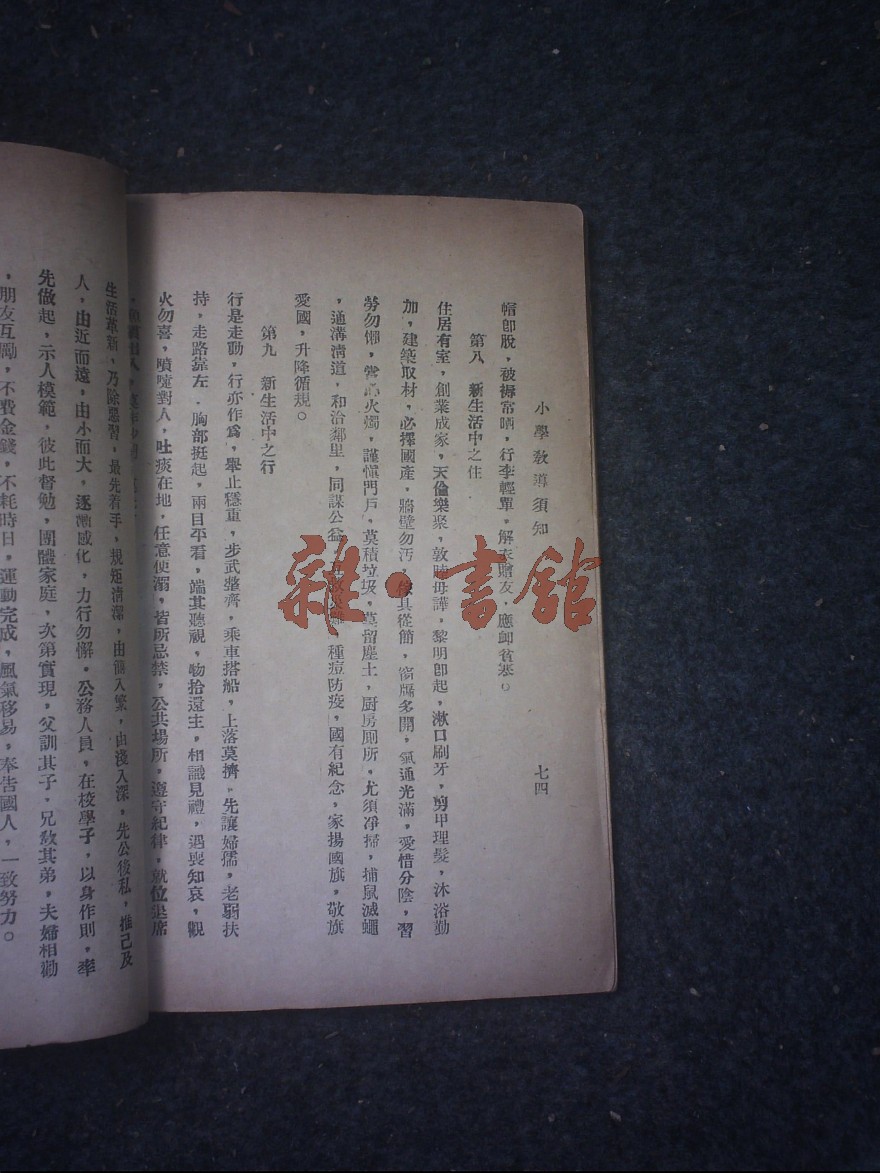 小學教導須知
七四
帽卽脫，被褥常晒，行李輕單，解衣贈友，應卹貧寒。
第八　新生活中之住
住居有室，創業成家，天倫樂聚，敦睦毋譁，黎明卽起，漱口刷牙，剪甲理髮，沐浴勤
加，建築取材，必擇國產，牆壁勿汚，傢具從簡，窗牖多開，氣通光滿，愛惜分陰，習
勞勿懶，當心火燭，謹愼門戶，莫積垃圾，莫留塵土，厨房厠所，尤須凈掃，捕鼠滅蠅
，通溝淸道，和洽鄰里，同謀公益，種痘防疫，國有紀念，家揚國旗，敬旗
愛國，升降循規。
第九　新生活中之行
行是走動，行亦作爲，舉止穩重，步武整齊，乘車搭船，上落莫擠，先讓婦孺，老弱扶
持，走路靠左，胸部挺起，兩目平看，端其聽視，物拾還主，相識見禮，遇喪知哀，觀
火勿喜，噴嚏對人，吐痰在地，任意便溺，皆所忌禁，公共場所，遵守紀律，就位退席
生活革新，乃除惡習，最先着手，規矩淸潔，由簡入繁，由淺入深，先公後私，推己及
人，由近而遠，由小而大，逐漸感化，力行勿懈。公務人員，在校學子，以身作則，率
先做起，示人模範，彼此督勉，團體家庭，次第實現，父訓其子，兄敎其弟，夫婦相勸
，朋友互勵，不費金錢，不耗時日，運動完成，風氣移易，奉告國人，一致努力。
雜·書館